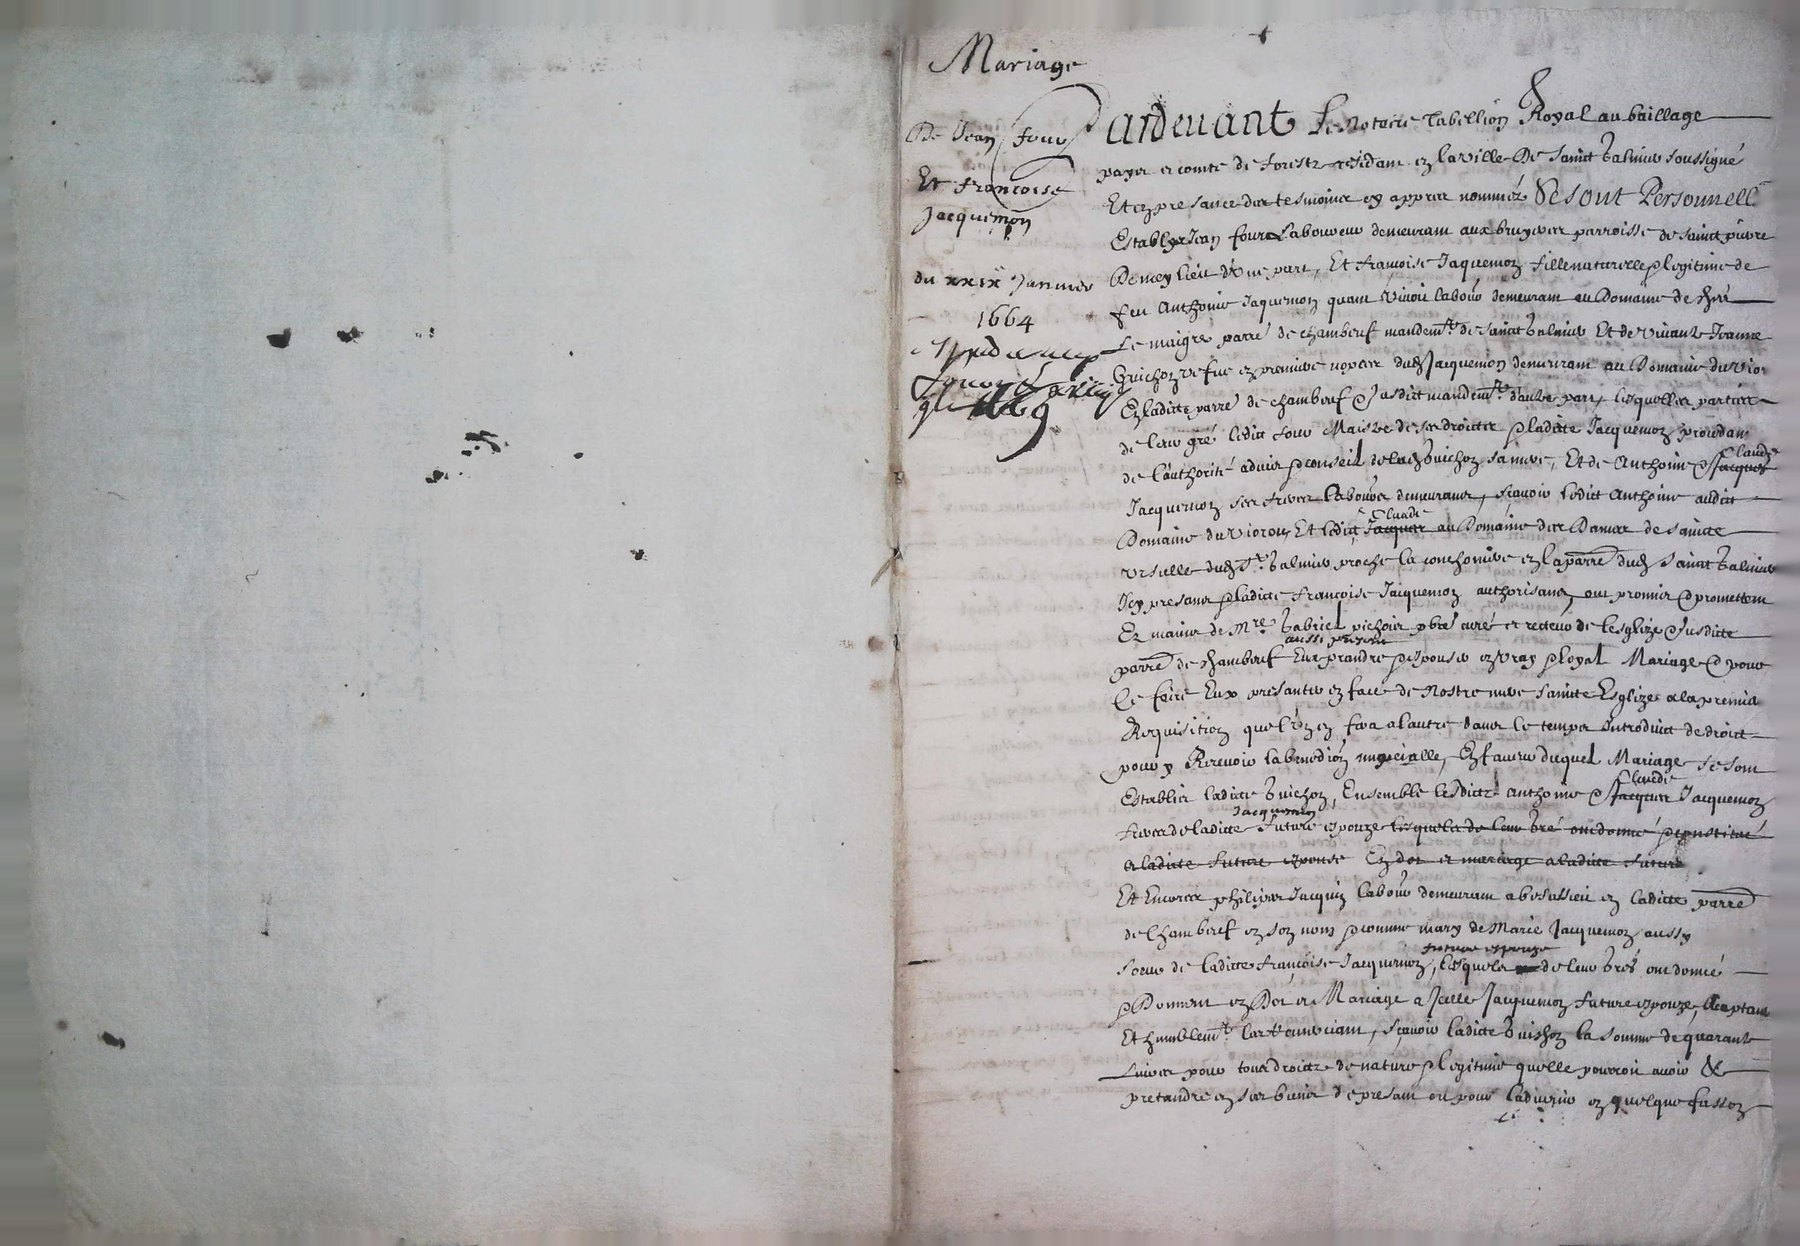 Mariage
De Jean four
Et francoise
Jacquemon
du xxix Janvier
1664
Pardevant Le Notaire Tabellion Royal au baillage
payx et comte de forestz residant en la ville De Sainct Galmier soussigné
Et en presance des tesmoins cy appres nommez Se sont Personnell.
Establys Jean four Laboureur demeurant aux bruyeres parroisse de sainct
De meylieu d'une part, Et francoise Jaquemon fille naturelle & legitime de
feu Anthoine Jaquemon quant vivoit labour demeurant au Domaine de
Le maigre parre de chambeuf mandemt. de sainct Galmier Et de vivante Jeanne
Guichon vefve en premiere nopces dud Jacquemon demeurant au Domaine du
En ladicte parre de chambeuf & susdict mandemt. d'autre part, lesquelles parties
de leur gré ledict four Maistre de ses droictz & ladicte Jacquemon
de l'authorité advis & conseil de lad Guichon sa mere, Et de Anthoine & Claude Jacques
Jacquemon ses freres laboures demeurans, scavoir ledict Anthoine audict
Domaine du Et ledict Claude Jacques au Domaine des Dames de saincte
Ursulle dud St. Galmier proche la en la parre dud Sainct Galmier
Icy presans & ladicte francoise Jacquemon authorisans, ont promis & promettent
Ez mains de Mre. Gabriel pbre curé et recteur de lesglize susdicte
parre de chambeuf aussi present Eux prandre & espouser en vray & loyal Mariage & pour
Ce faire Eux presanter en face de Nostre mere saincte Esglize a la premiere
Requisition que l'un en fera a lautre dans le temps Introduict de droict
pour y Recevoir la benedion nuptialle, En faveur duquel Mariage se sont
Establis ladicte Guichon, Ensemble lesdictz Anthoine & Claude Jacques Jacquemon
freres de ladicte Jacquemon future espouze lesquels de leur gré ont donné & constitué
a ladicte future espouse En dot et mariage a ladicte future
Et Encores philipes Jacquin labour demeurant a en ladicte parre
de Chambeuf en son nom & comme mary de Marie Jacquemon aussy
soeur de ladicte francoise Jacquemon, future espouze lesquels de leur grés ont donné
& Donnent en Dot et Mariage a Icelle Jacquemon future espouze, acceptant
Et humblemt. les Remerciant, scavoir ladicte Guichon la somme de quarante
Livres pour tous droictz de nature & legitime quelle pourroit avoir &
pretandre en ses biens de presant ou pour ladvenir en quelque fasson